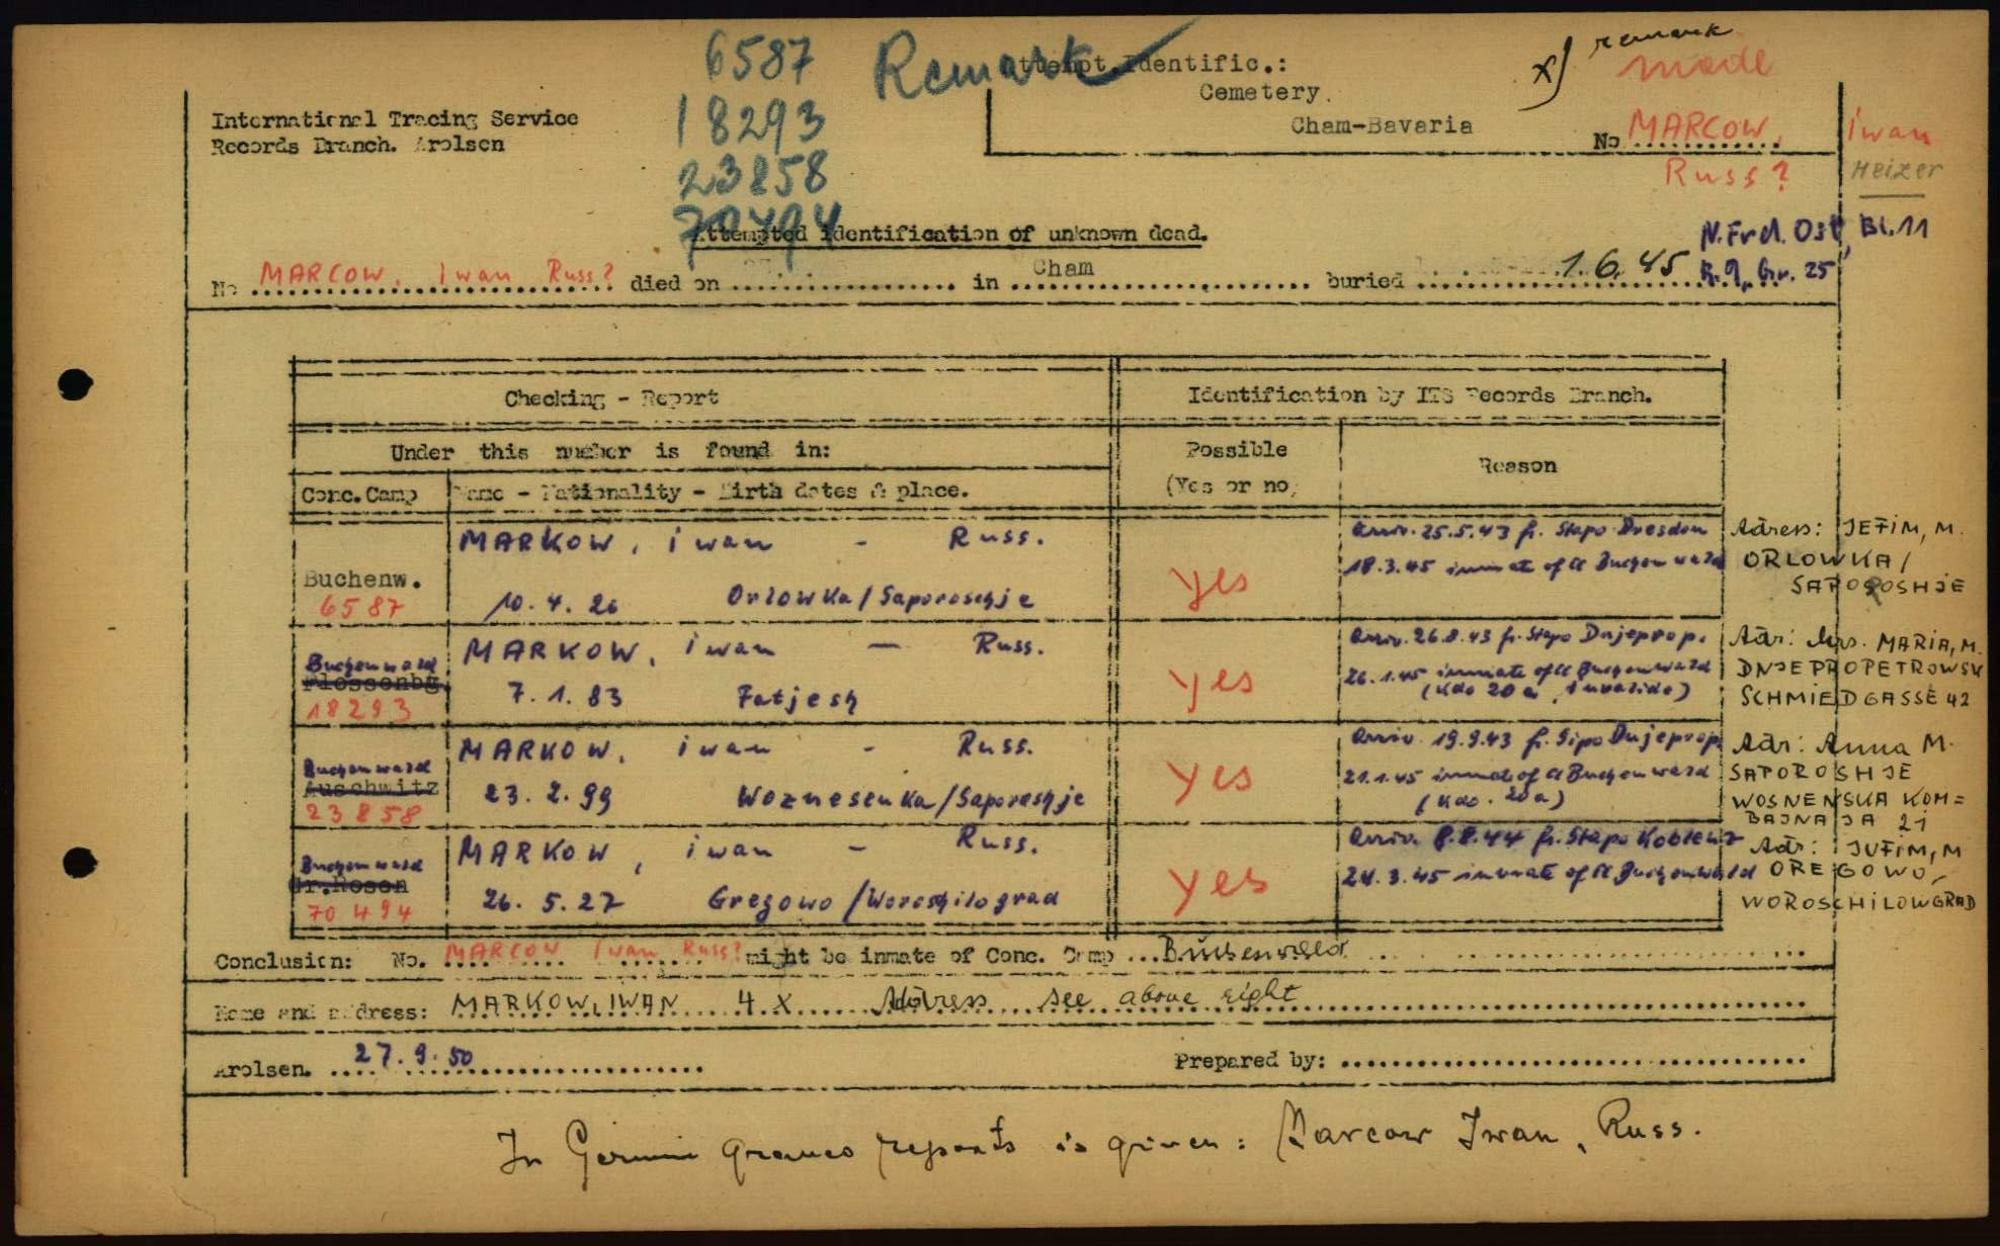 6587
18293
23858
70494
Remark
Attempt.Identific.:
Cemetery.
Cham-Bavaria
x) remark
made
No MARCOW, iwan
Russ?
Heizer
International Tracing Service
Records Branch. Arolsen
Attempted identification of unknown dead.
N.Frd. Ost, Bl.11
R.9, Gr. 25
No MARCOW, iwan Russ? died on in Cham buried 1.6.45
Checking - Report
Identification by ITS Records Branch.
Under this number is found in:
Possible
(Yes or no)
Reason
Conc.Camp
Name - Nationality - Birth dates & place.
Buchenw.
6587
MARKOW, iwan - Russ.
10.4.26 Orlowka/Saporoschje
yes
Arriv. 25.5.43 fr. Stapo Dresden
18.3.45 inmate of Cl Buchenwald
Adress: JEFIM, M.
ORLOWKA/
SAPOROSHJE
Buchenwald
Flossenbg.
18293
MARKOW, iwan - Russ.
7.1.83 Fatjesh
yes
Arriv. 26.8.43 fr. Stapo Dnjeprop.
26.1.45 inmate of Cl Buchenwald
(Kdo 20a, Invalide)
Adr: Mrs. MARIA, M.
DNJEPROPETROWSK
SCHMIEDGASSE 42
Buchenwald
Auschwitz
23858
MARKOW, iwan - Russ.
23.2.99 Woznesenka/Saporoshje
yes
Arriv. 19.9.43 fr. Sipo Dnjeprop.
21.1.45 inmate of Cl Buchenwald
(Kdo. 20a)
Adr: Anna M.
SAPOROSHJE
WOSNENSKA KOM=
BAJNAJA 21
Buchenwald
Gr.Rosen
70494
MARKOW, iwan - Russ.
26.5.27 Gregowo/Woroschilograd
yes
Arriv. 8.8.44 fr. Stapo Koblenz
24.3.45 inmate of Cl Buchenwald
Adr: JUFIM, M
OREGOWO,
WOROSCHILOWGRAD
Conclusion: No. MARCOW Iwan Russ? might be inmate of Conc. Camp Buchenwald
Name and address: MARKOW, IWAN 4 X Address see above right
Arolsen. 27.9.50
Prepared by:
In German graves reports is given: Marcow Iwan, Russ.